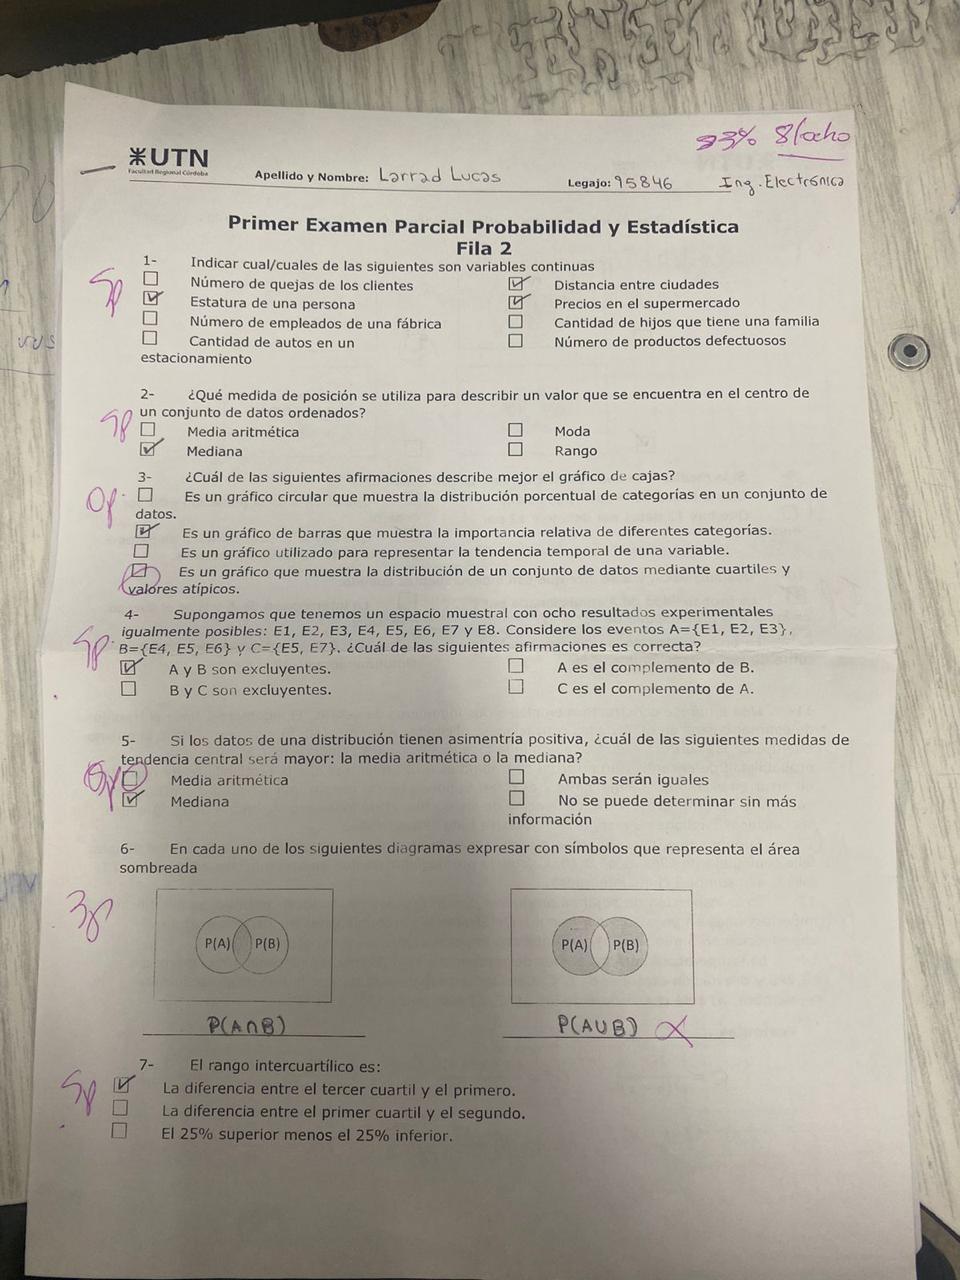 73% 8/ocho
UTN
Facultad Regional Córdoba
Apellido y Nombre: Larrad Lucas Legajo: 95846 Ing. Electrónica
Primer Examen Parcial Probabilidad y Estadística
Fila 2
1- Indicar cual/cuales de las siguientes son variables continuas
Número de quejas de los clientes Distancia entre ciudades
5p Estatura de una persona Precios en el supermercado
Número de empleados de una fábrica Cantidad de hijos que tiene una familia
Cantidad de autos en un Número de productos defectuosos
estacionamiento
2- ¿Qué medida de posición se utiliza para describir un valor que se encuentra en el centro de
5p un conjunto de datos ordenados?
Media aritmética Moda
Mediana Rango
3- ¿Cuál de las siguientes afirmaciones describe mejor el gráfico de cajas?
0p Es un gráfico circular que muestra la distribución porcentual de categorías en un conjunto de
datos.
Es un gráfico de barras que muestra la importancia relativa de diferentes categorías.
Es un gráfico utilizado para representar la tendencia temporal de una variable.
Es un gráfico que muestra la distribución de un conjunto de datos mediante cuartiles y
valores atípicos.
4- Supongamos que tenemos un espacio muestral con ocho resultados experimentales
igualmente posibles: E1, E2, E3, E4, E5, E6, E7 y E8. Considere los eventos A={E1, E2, E3},
5p B={E4, E5, E6} y C={E5, E7}. ¿Cuál de las siguientes afirmaciones es correcta?
A y B son excluyentes. A es el complemento de B.
B y C son excluyentes. C es el complemento de A.
5- Si los datos de una distribución tienen asimentría positiva, ¿cuál de las siguientes medidas de
tendencia central será mayor: la media aritmética o la mediana?
0p Media aritmética Ambas serán iguales
Mediana No se puede determinar sin más
información
6- En cada uno de los siguientes diagramas expresar con símbolos que representa el área
sombreada
3p
P(A) P(B) P(A) P(B)
P(A∩B) P(A∪B)
7- El rango intercuartílico es:
5p La diferencia entre el tercer cuartil y el primero.
La diferencia entre el primer cuartil y el segundo.
El 25% superior menos el 25% inferior.